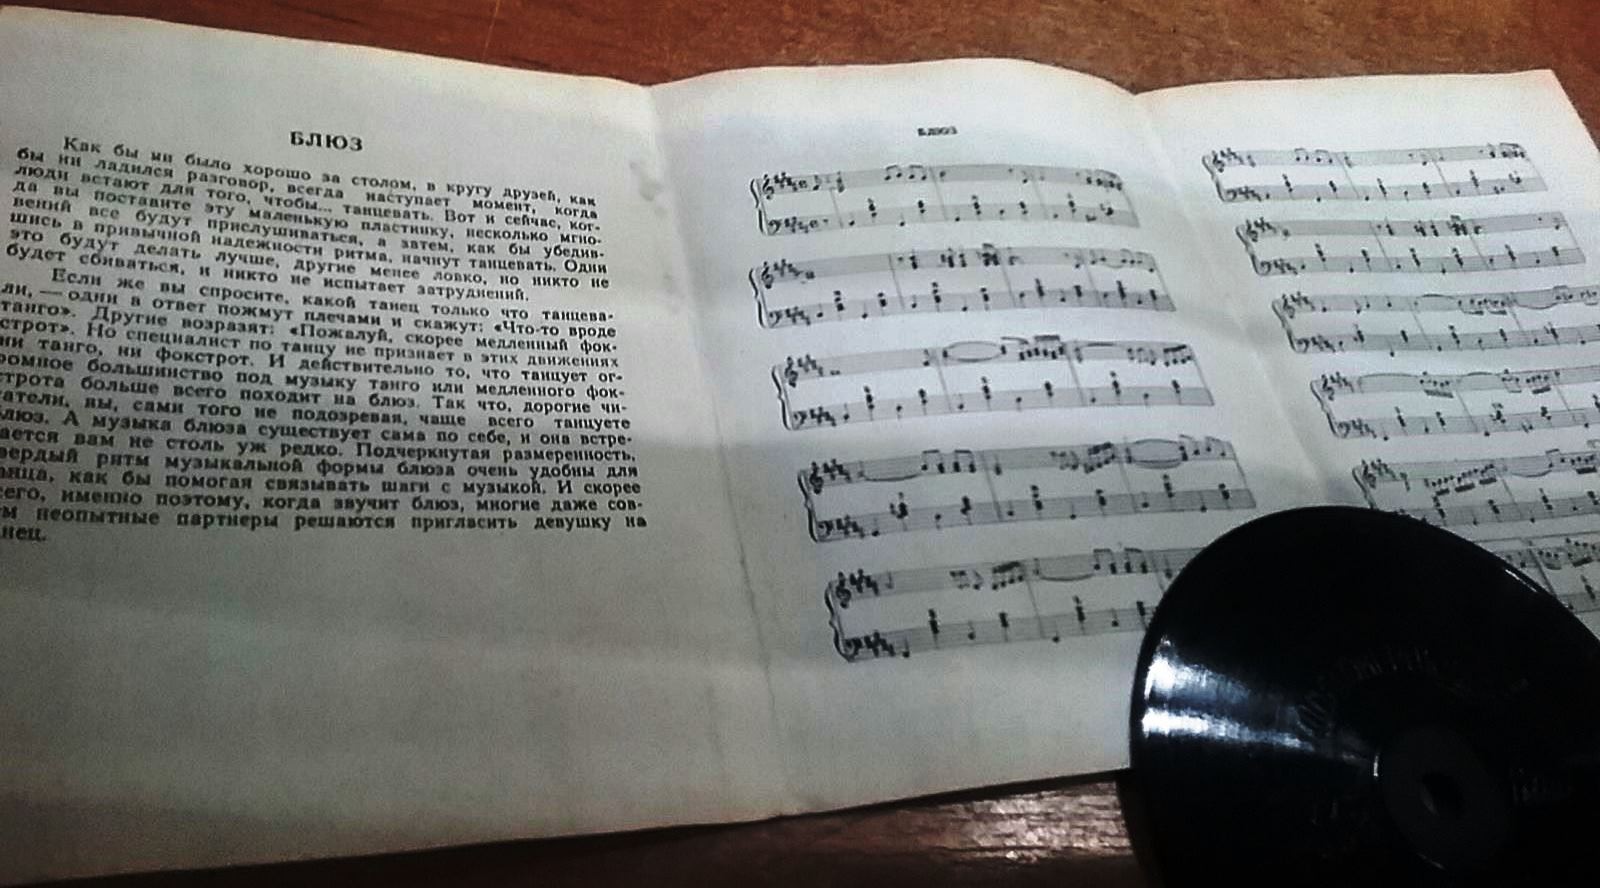 БЛЮЗ
Как бы ни было хорошо за столом, в кругу друзей, как
бы ни ладился разговор, всегда наступает момент, когда
люди встают для того, чтобы... танцевать. Вот и сейчас, ког-
да вы поставите эту маленькую пластинку, несколько мгно-
вений все будут прислушиваться, а затем, как бы убедив-
шись в привычной надежности ритма, начнут танцевать. Одни
это будут делать лучше, другие менее ловко, но никто не
будет сбиваться, и никто не испытает затруднений.
Если же вы спросите, какой танец только что танцева-
ли, — одни в ответ пожмут плечами и скажут: «Что-то вроде
танго». Другие возразят: «Пожалуй, скорее медленный фок-
строт». Но специалист по танцу не признает в этих движениях
ни танго, ни фокстрот. И действительно то, что танцует ог-
ромное большинство под музыку танго или медленного фок-
строта больше всего походит на блюз. Так что, дорогие чи-
атели, вы, сами того не подозревая, чаще всего танцуете
блюз. А музыка блюза существует сама по себе, и она встре-
ается вам не столь уж редко. Подчеркнутая размеренность,
вердый ритм музыкальной формы блюза очень удобны для
анца, как бы помогая связывать шаги с музыкой. И скорее
сего, именно поэтому, когда звучит блюз, многие даже сов-
м неопытные партнеры решаются пригласить девушку на
нец.
БЛЮЗ